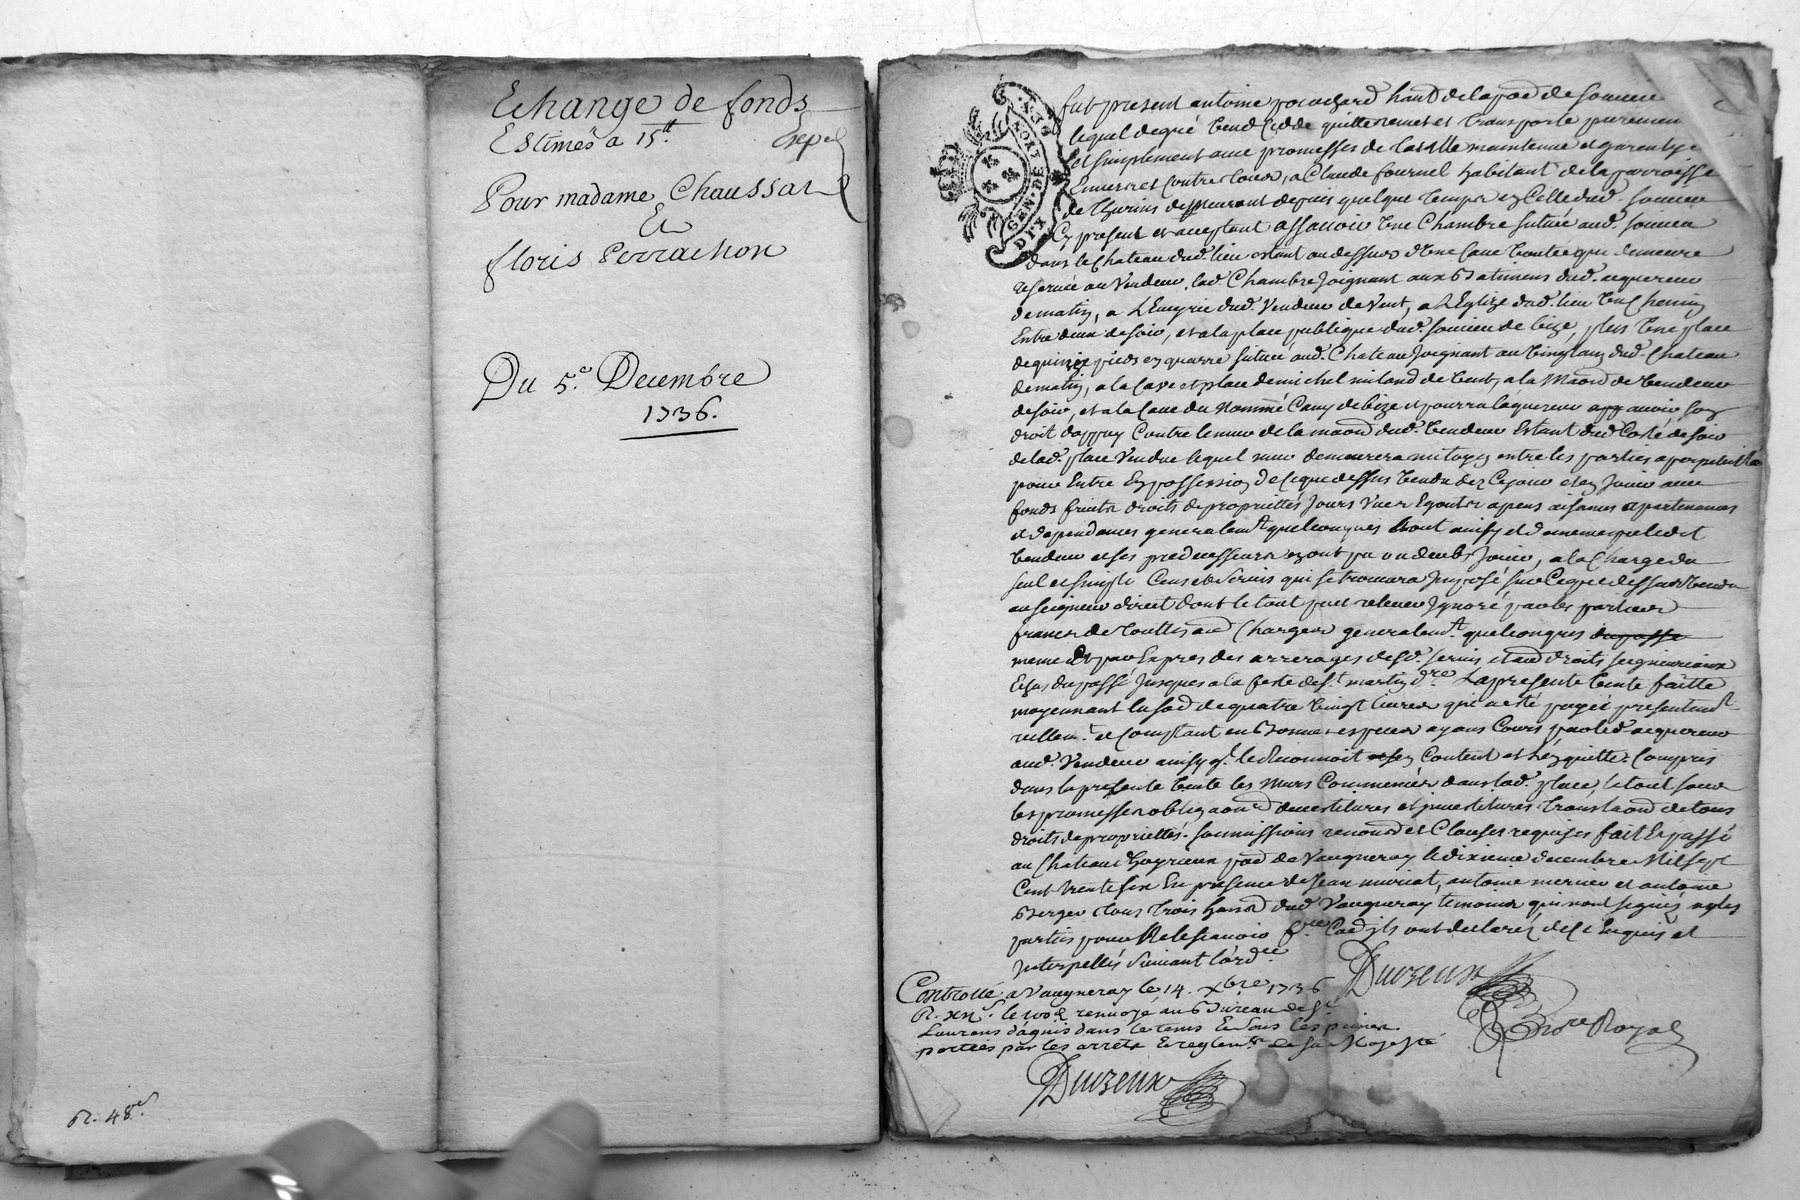 Echange de fonds
Estimés a 15ᵗᵗ
Exped
Pour madame Chaussat
Et
floris Perrachon
Du 5.e Decembre
1736.
R. 48ˢ.
GEN. DE LYON
DIX DEN.
fut present antoine hant de la pad de Soucieu
lequel de gré vend cedde quitte remet et transporte purement
et simplement avec promesses de maintenue et garentye
Envers et contre tous, a Claude fournel habitant de la parroisse
de Thurins demeurant depuis quelque temps en Celle dud. Soucieu
Cy present et acceptant assavoir Une Chambre situéé aud. Soucieu
dans le Chateau dud. lieu estant au dessus d'Une Cave Voutéé que demeure
reservéé au Vendeur, lad. Chambre Joignant aux Batimens dud. acquereur
de matin, a L'Ecuyrie dud. Vendeur de Vent, a L'Eglize dud. lieu Un Chemin
Entre deux de soir, et a la place publique dud. Soucieu de bize, plus Une place
de quinze pieds en quarré situéé aud. Chateau Joignant au Vingtain dud. Chateau
de matin, a la Cave et place de michel miland de Vent, a la Maond du Vendeur
de soir, et a la Cave du Nommé Camy de bize et pourra l'aquereur avoir son
droit d'appuy Contre le mur de la maond dud. Vendeur Estant dud. Costé de soir
de lad. place Vendue lequel mur demeurera mitoyen entre les parties a perpetuité
pour Entrer En possession de Ce que dessus Vendu dez Ce jour et en Jouir avec
fonds fruits droits de proprietés Jours Vües Egouts apens aisances apartenances
et dependances generalemt. quelconques tout ainsy et de meme que led.
Vendeur et ses predecesseurs en ont pu ou deub Jouir, a la Charge du
seul et simple Cens et Servis qui se trouvera Imposé sur Ce que dessus Vendu
au seigneur direct dont le tout peut relever Ignoré par les parties
francs de touttes aud. Charges generalemt. quelconques du passé
meme Et par Exprés des arrerages desd. servis et aud. droits seigneuriaux
Echus du passé Jusques a la feste de St. martin dre. La presente Vente faitte
moyennant la sod. de quatre Vingt livres qui a esté payéé presentemt.
réellemt. et Comptant en Bonnes especes ayans Cours par led. acquereur
aud. Vendeur ainsy qu'il le Reconnoit Content et L'en quitte. Compris
dans la presente Vente les Murs Commencés dans lad. place, le tout sous
les promesses obligaond. devestitures et jnvestitures translaond de tous
droits de proprietés. soumissions renond et Clauses requises fait Et passé
au Chateau d'Hoyrieux pad. de Vaugneray le dixieme decembre Mil sept
Cent trente six En presence de Jean muricat, antoine mercier et antoine
Berger tous trois hants dud. Vaugneray temoins qui n'ont signés ny les
parties pour Ne le sçavoir fre. Comme ils ont declaré de Ce Enquis et
Interpellés suivant l'ordce.
Duvzeux
Nore Royal
Controllé a Vaugneray le 14. Xbre 1736
R. XXIIˢ. le 100e renvoyé au Bureau de St.
Laurens d'agnis dans le tems Et sous les peines
portées par les arrets Et reglemts. de sa Majesté
Duvzeux